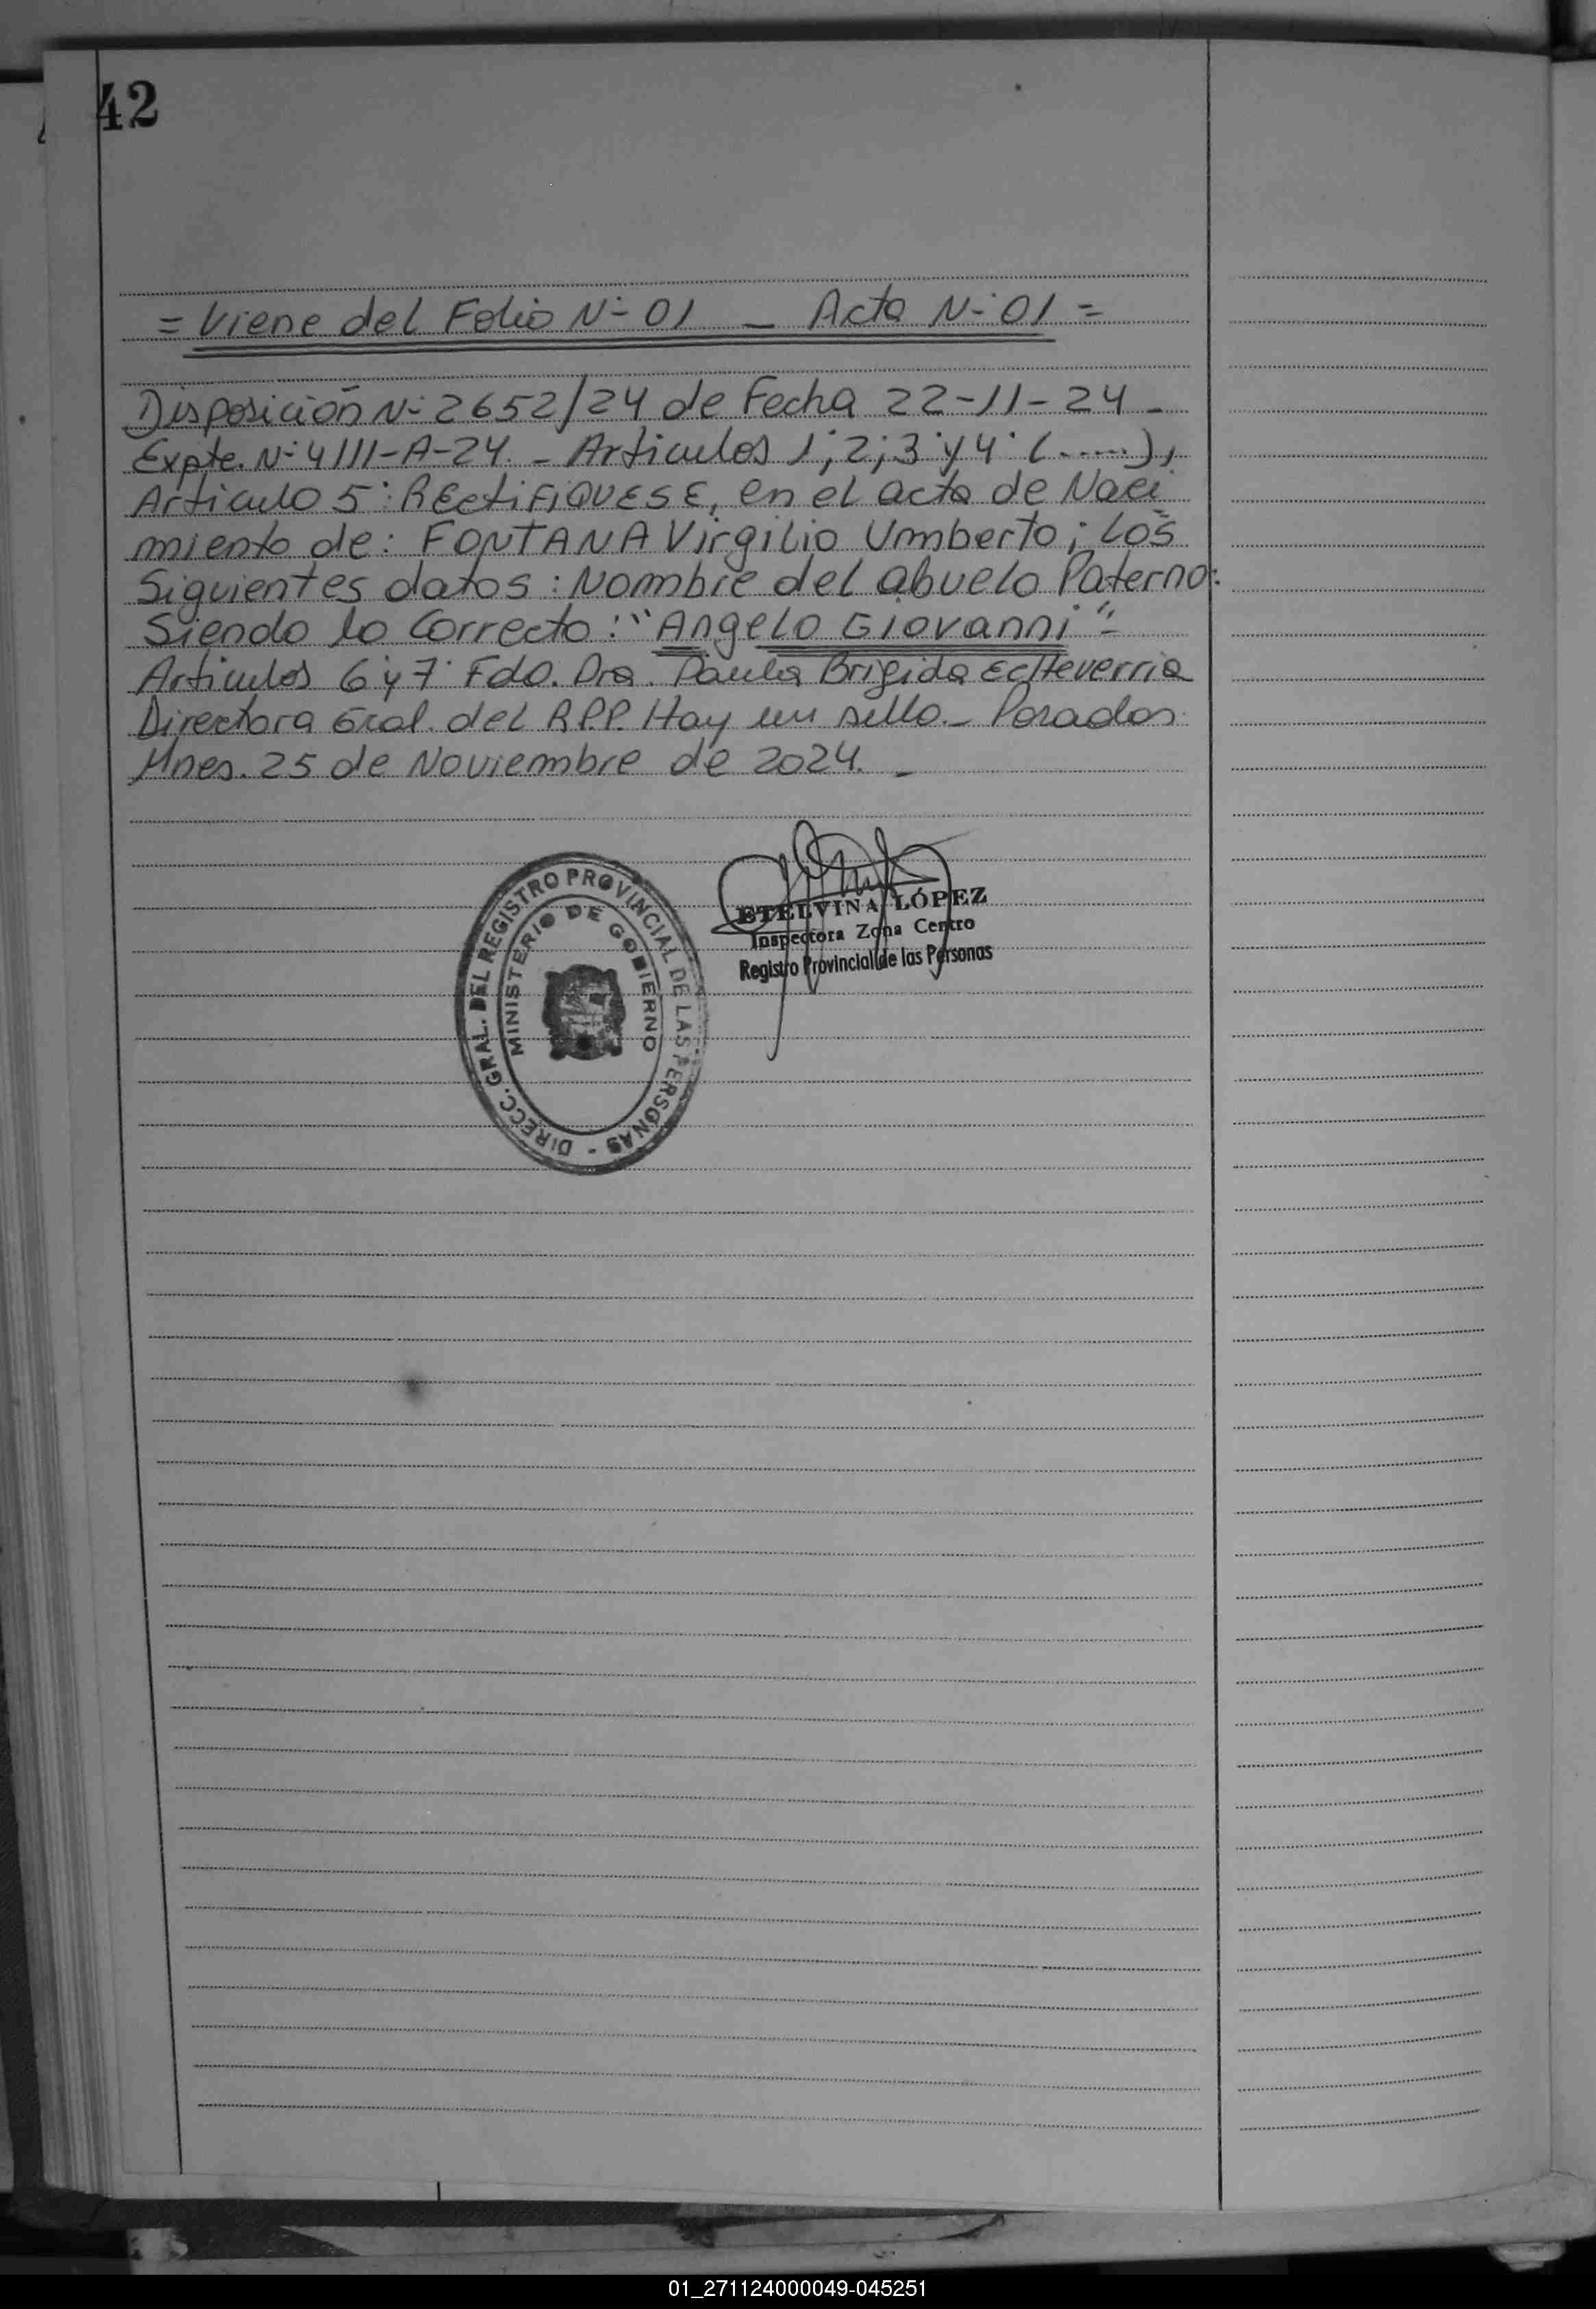 42
= Viene del Folio N° 01 _ Acta N° 01 =
Disposición N° 2652/24 de Fecha 22-11-24 -
Expte. N° 4111-A-24. - Articulos 1°, 2°, 3° y 4° (.....),
Articulo 5°: RECTIFIQUESE, en el acta de Naci
miento de: FONTANA Virgilio Umberto; Los
Siguientes datos: Nombre del abuelo Paterno:
Siendo lo Correcto: "Angelo Giovanni" -
Articulos 6° y 7° Fdo. Dra. Paula Brigida Echeverria
Directora Gral. del R.P.P. Hay un sello. - Posadas
Mnes. 25 de Noviembre de 2024. -
DIRECC. GRAL. DEL REGISTRO PROVINCIAL DE LAS PERSONAS -
MINISTERIO DE GOBIERNO
ETELVINA LÓPEZ
Inspectora Zona Centro
Registro Provincial de las Personas
01_271124000049-045251